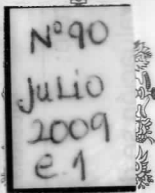 Nº 90
Julio
2009
e.1